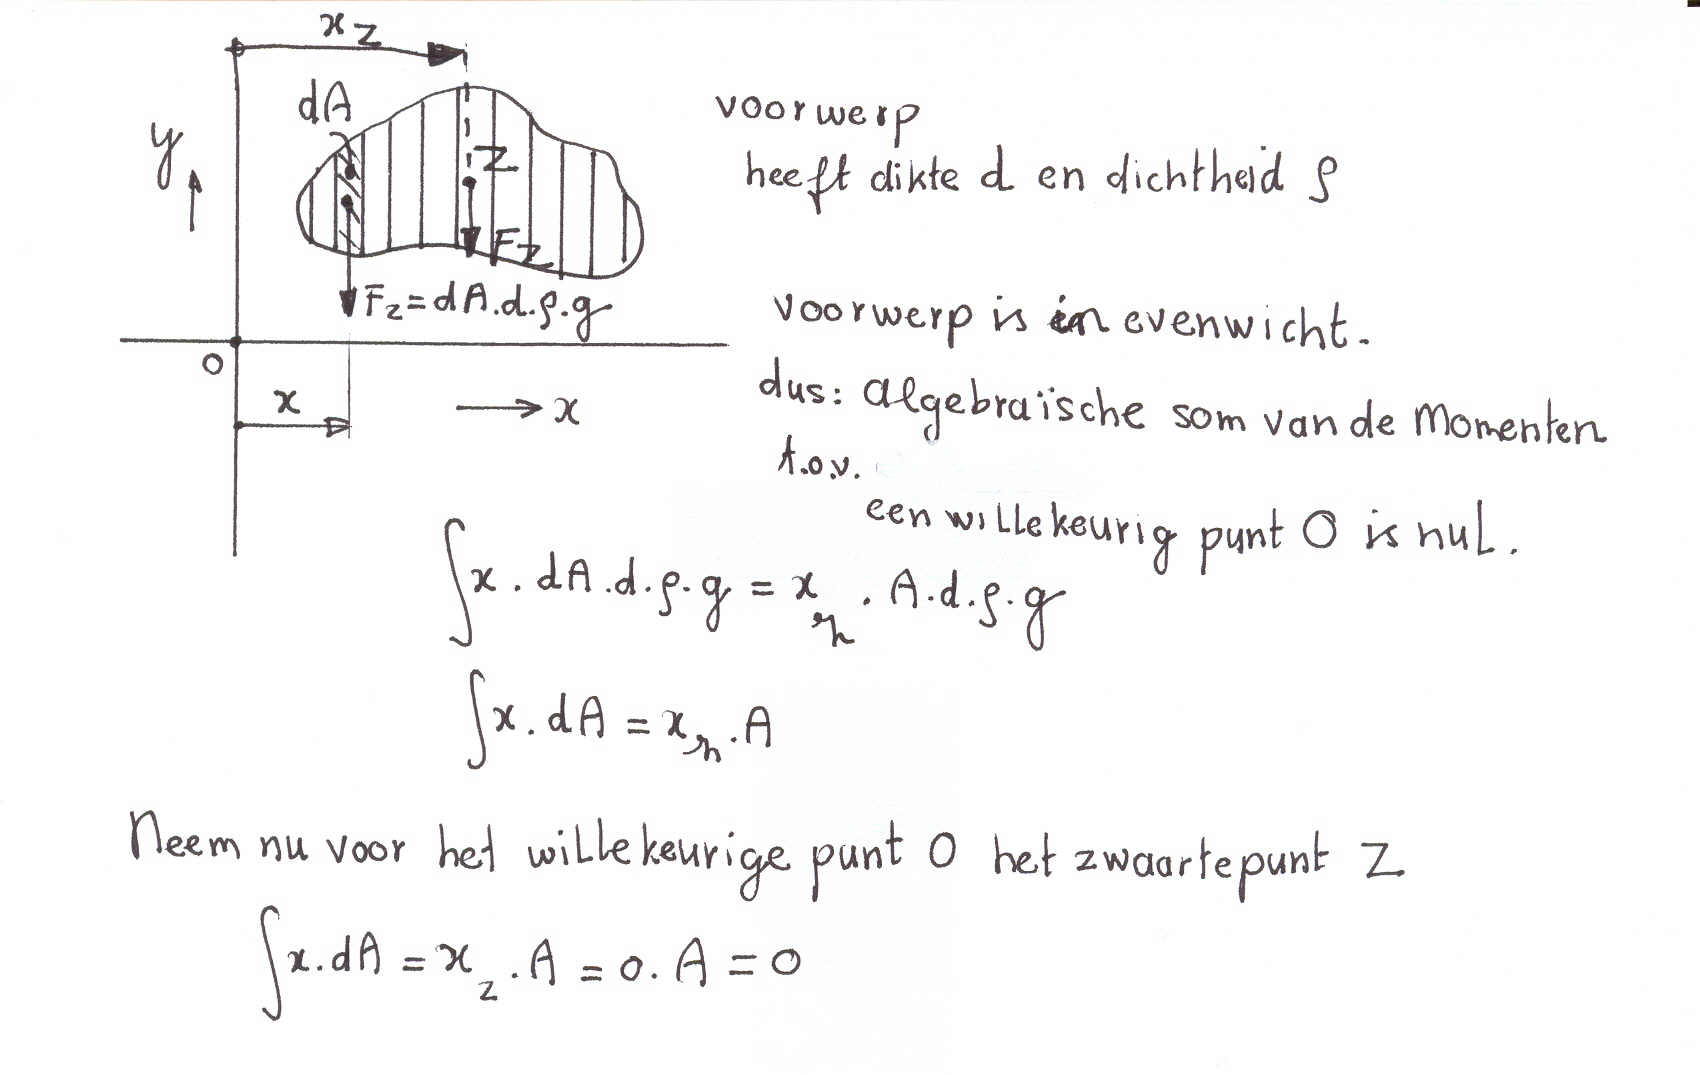 x z
dA
y
Z
Fz
Fz = dA.d.ρ.g
O
x
x
voorwerp
heeft dikte d en dichtheid ρ
voorwerp is in evenwicht.
dus: algebraïsche som van de Momenten
t.o.v.
een willekeurig punt O is nul.
∫x . dA . d . ρ . g = x z . A . d . ρ . g
∫x . dA = x z . A
Neem nu voor het willekeurige punt O het zwaartepunt Z
∫x . dA = x z . A = 0 . A = 0